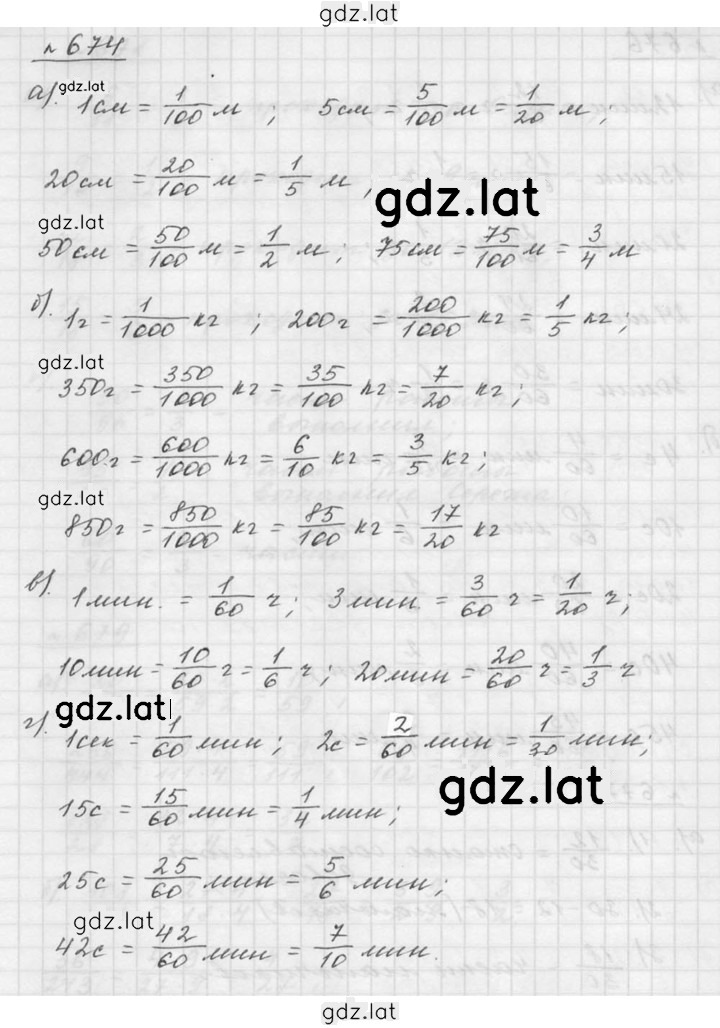 gdz.lat
№ 674
gdz.lat
а). 1см = 1/100 м ; 5см = 5/100 м = 1/20 м ;
20см = 20/100 м = 1/5 м ;
gdz.lat
gdz.lat
50см = 50/100 м = 1/2 м ; 75см = 75/100 м = 3/4 м
б). 1г = 1/1000 кг ; 200г = 200/1000 кг = 1/5 кг ;
gdz.lat
350г = 350/1000 кг = 35/100 кг = 7/20 кг ;
600г = 600/1000 кг = 6/10 кг = 3/5 кг ;
gdz.lat
850г = 850/1000 кг = 85/100 кг = 17/20 кг
в). 1мин. = 1/60 ч ; 3мин = 3/60 ч = 1/20 ч ;
10мин = 10/60 ч = 1/6 ч ; 20мин = 20/60 ч = 1/3 ч
gdz.lat
г). 1сек = 1/60 мин ; 2с = 2/60 мин = 1/30 мин ;
gdz.lat
15с = 15/60 мин = 1/4 мин ;
25с = 25/60 мин = 5/6 мин ;
gdz.lat
42с = 42/60 мин = 7/10 мин.
gdz.lat